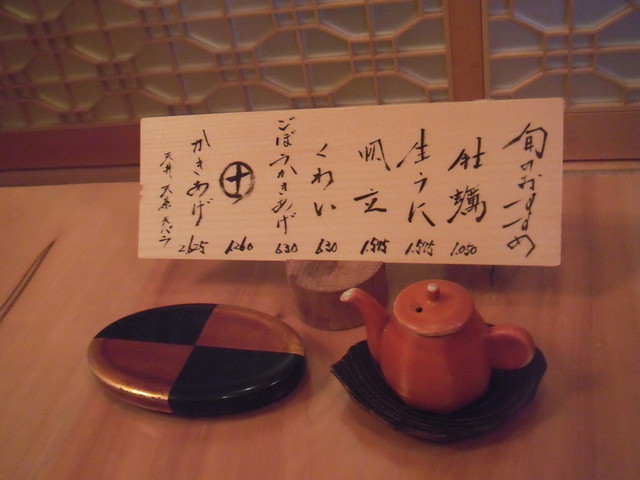 旬のおすすめ
牡蠣 1.050
生うに 1.575
帆立 1.575
くわい 630
ごぼうかきあげ 630
㊏ 1.260
かきあげ 2.625
天丼 天茶 天バラ